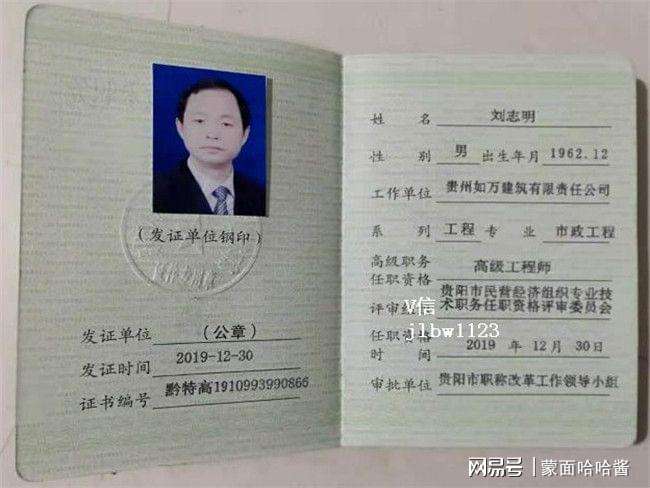 (发证单位钢印)
发证单位 (公章)
发证时间 2019-12-30
证书编号 黔特高1910993990866
姓名 刘志明
性别 男 出生年月 1962.12
工作单位 贵州如万建筑有限责任公司
系列 工程 专业 市政工程
高级职务
任职资格 高级工程师
贵阳市民营经济组织专业技
评审组织 术职务任职资格评审委员会
V信
jlbw1123
任职资格
时间 2019 年 12 月 30日
审批单位 贵阳市职称改革工作领导小组
网易号 | 蒙面哈哈酱